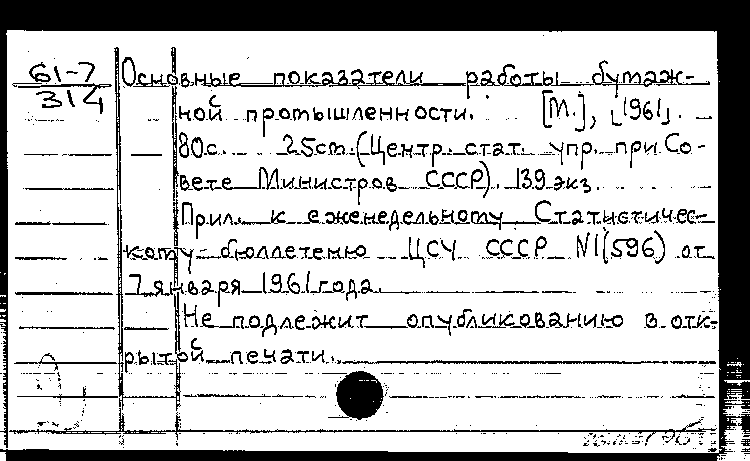 61-7
314
Основные показатели работы бумаж-
ной промышленности. [М.], [1961].
80с. 25см. (Центр. стат. упр. при Со-
вете Министров СССР). 139 экз.
Прил. к еженедельному Статистичес-
кому бюллетеню ЦСУ СССР №1(596) от
7 января 1961 года.
Не подлежит опубликованию в отк-
рытой печати.